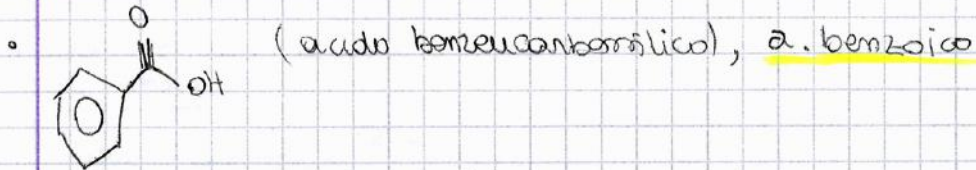 O
OH
(acido benzencarbossilico), a. benzoico